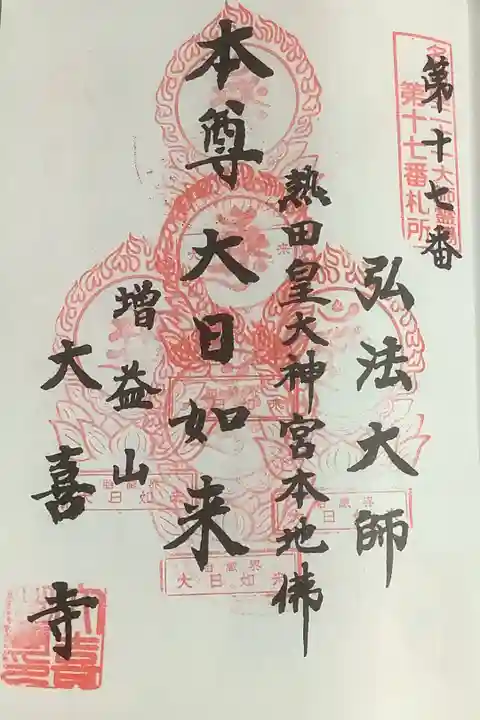 第十七番
第十七番札所
弘法大師
熱田皇大神宮本地佛
本尊大日如来
増益山
大喜寺
胎蔵界
大日如来